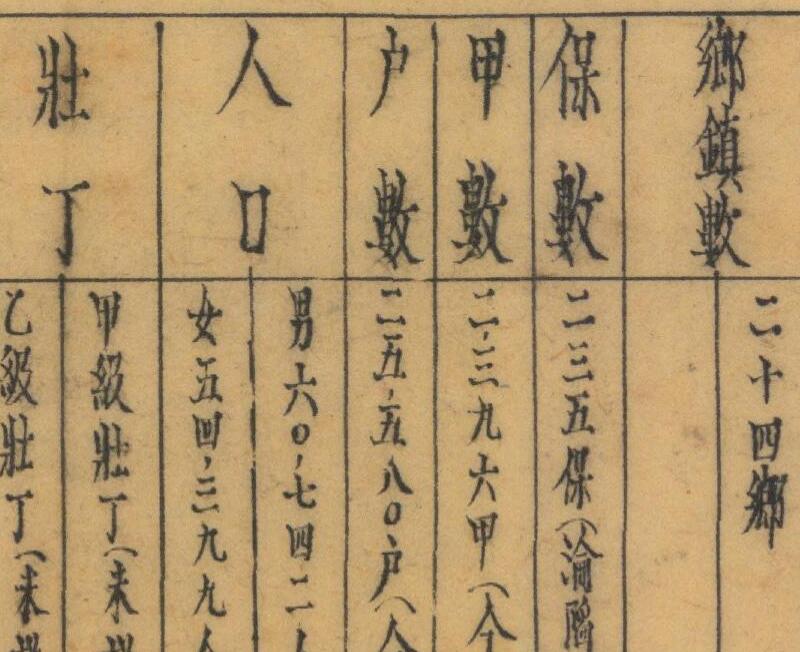 鄉鎮數
二十四鄉
保數
二三五保(淪陷
甲數
二、三九六甲(
戶數
二五、五八〇戶(
人口
男六〇、七四二人
女五四、三九九人
壯丁
甲級壯丁(未
乙級壯丁(未